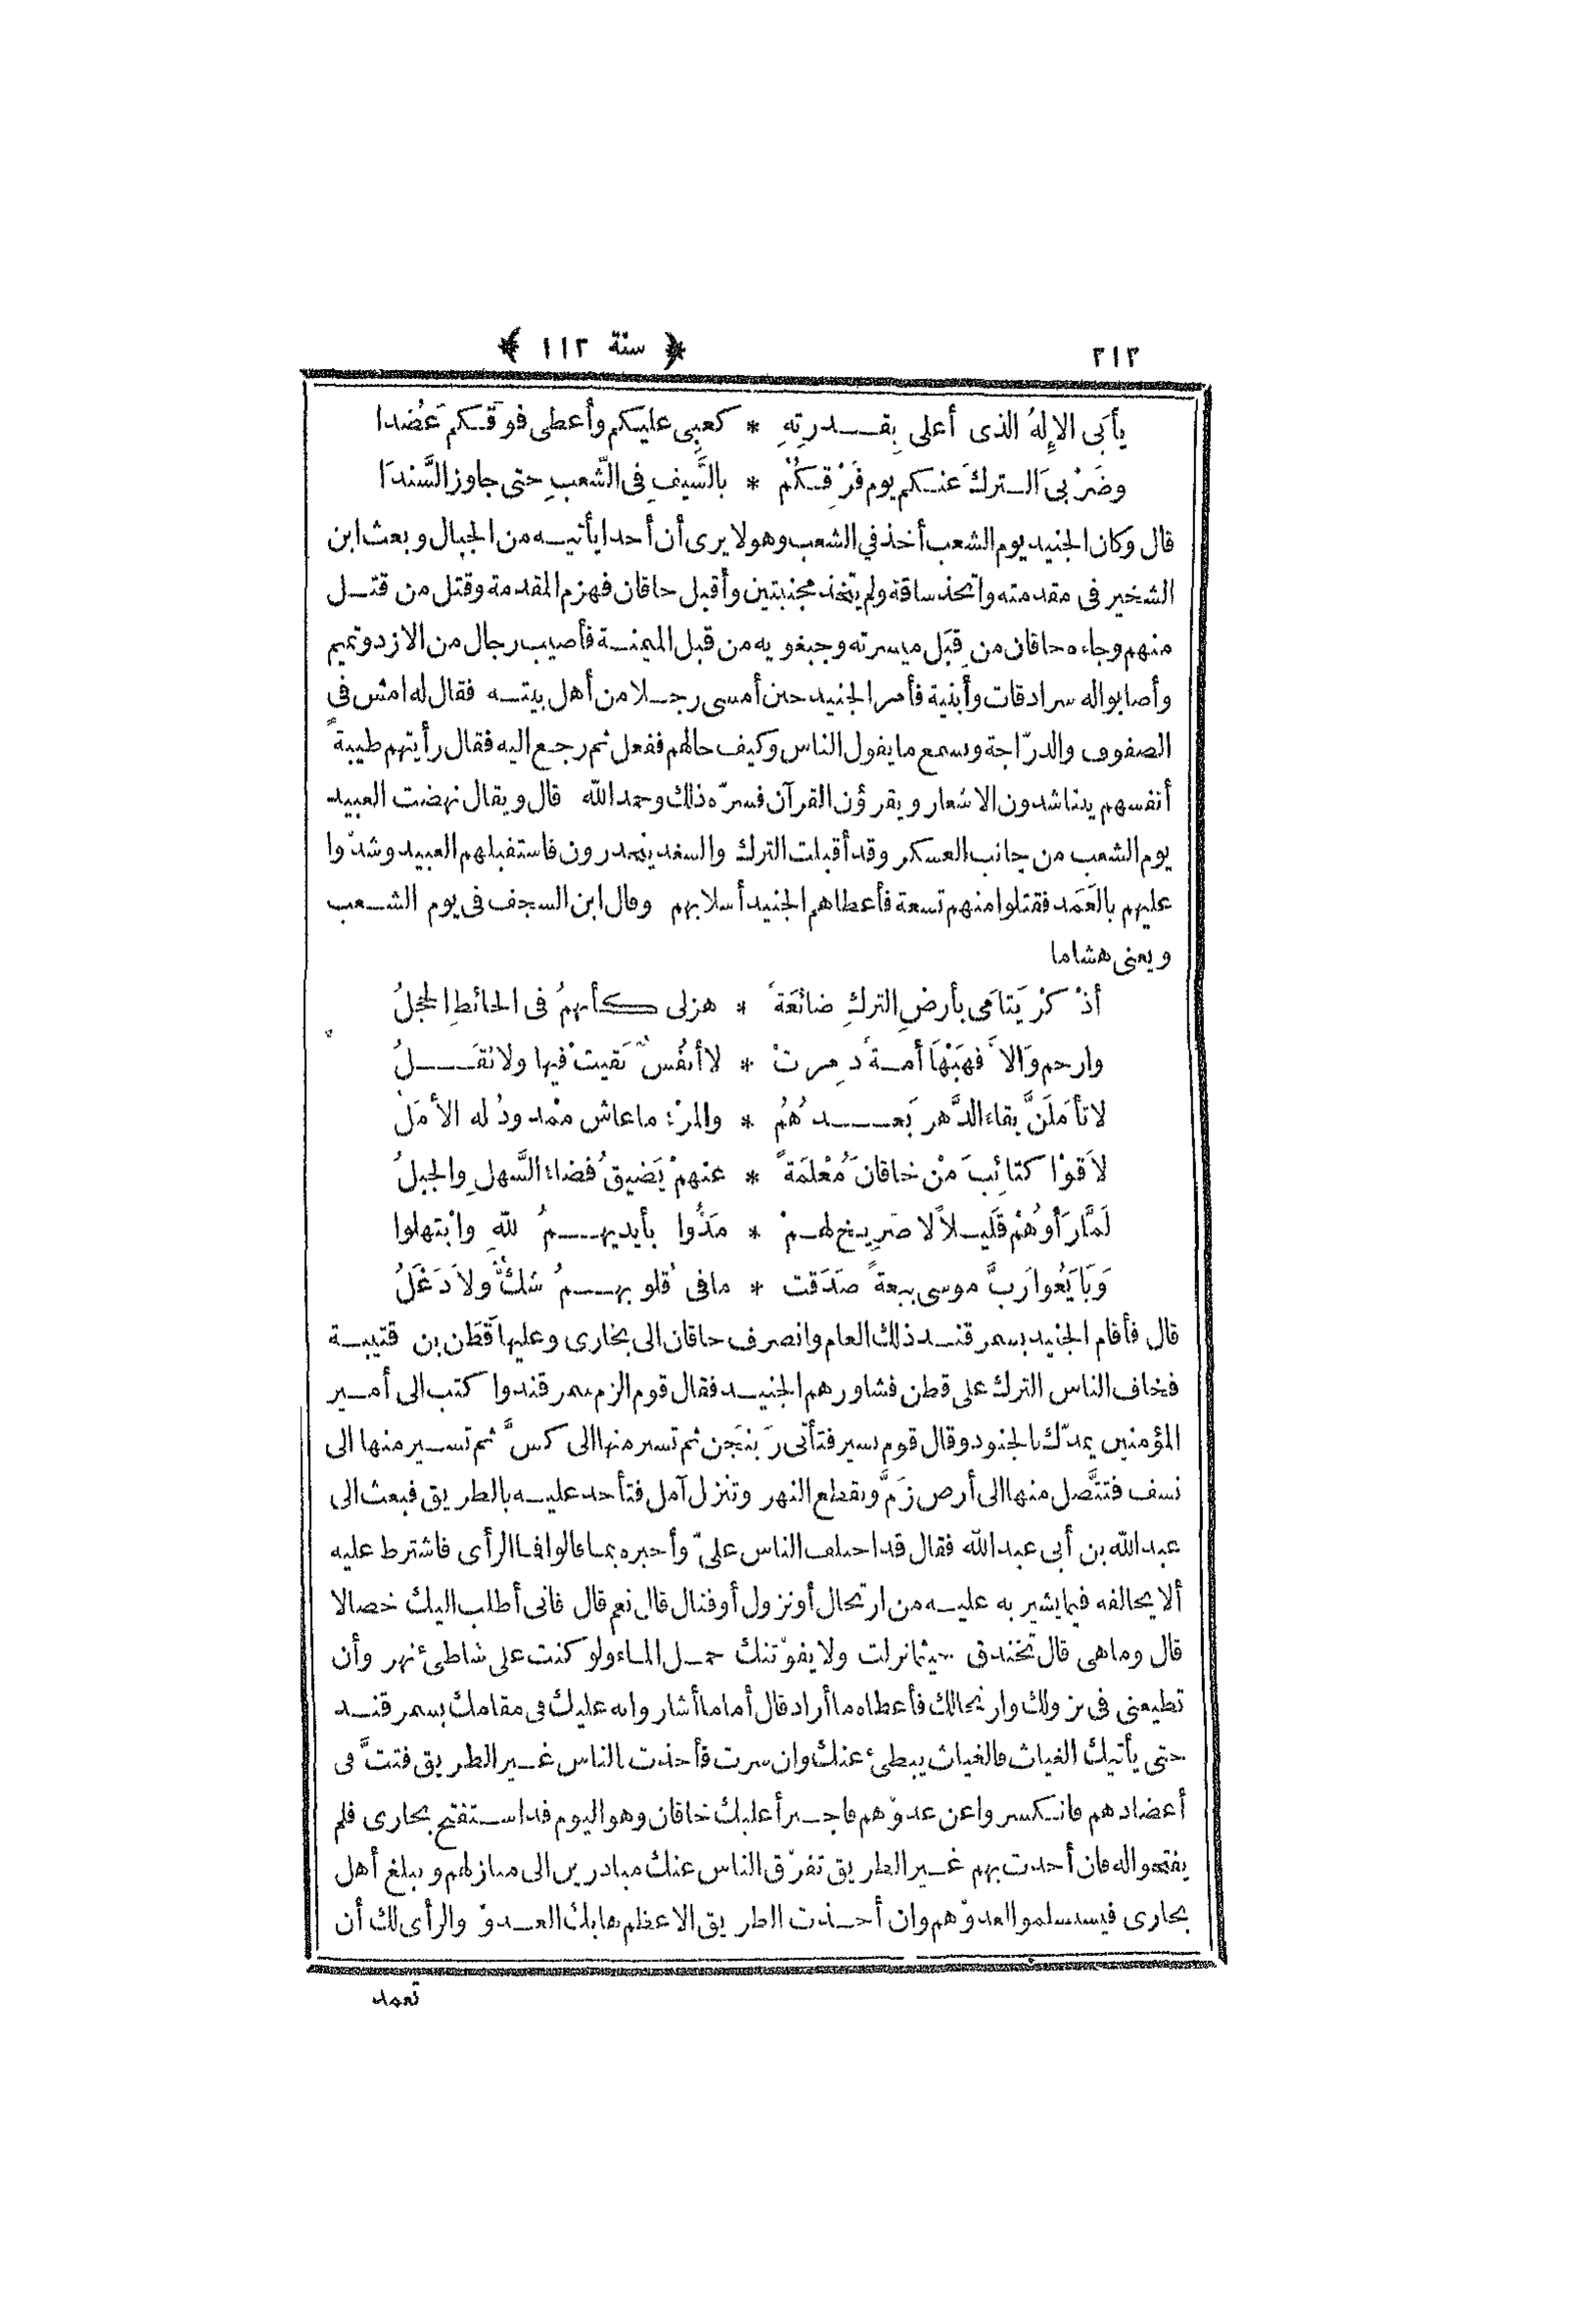 ٢١٢ ﴿ سنة ١١٢ ﴾
يأبَى الإِلهُ الذى أعلى بِقـدرتِهِ * كعبِى عليكم وأعطى فوقَكم عَضُدا
وضَرْبىَ التركَ عنكم يوم فَرْقِكُمْ * بالسَّيفِ فى الشّعبِ حتى جاوز السَّندَا
قال وكان الجنيد يوم الشعب أخذ في الشعب وهو لا يرى أن أحدا يأتيه من الجبال وبعث ابن
الشخير فى مقدمته واتخذ ساقة ولم يتخذ مجنبتين وأقبل خاقان فهزم المقدمة وقتل من قتل
منهم وجاءه خاقان من قِبَل ميسرته وجبغويه من قبل الميمنة فأصيب رجال من الازد وتميم
وأصابوا له سرادقات وأبنية فأمر الجنيد حين أمسى رجلا من أهل بيته فقال له امش فى
الصفوف والدرّاجة وسمع ما يقول الناس وكيف حالهم ففعل ثم رجع اليه فقال رأيتهم طيبةً
أنفسهم يتناشدون الاشعار ويقرؤن القرآن فسرّه ذلك وحمد الله قال ويقال نهضت العبيد
يوم الشعب من جانب العسكر وقد أقبلت الترك والسغد ينحدرون فاستقبلهم العبيد وشدّوا
عليهم بالعَمَد فقتلوا منهم تسعة فأعطاهم الجنيد أسلابهم وقال ابن السجف فى يوم الشعب
ويعنى هشاما
أذْكرْ يَتامَى بأرضِ التركِ ضائعَةً * هزلى كأنهمُ فى الحائطِ الحجلُ
وارحم وَالاَّ فهَبْهَا أمةً دمِرتْ * لا أنفُسٌ بَقيتْ فيها ولا ثقَلُ
لا تأمَلَنَّ بقاء الدَّهر بَعدهُمُ * والمرْء ما عاش ممْدودُ له الأمَل
لاَقوْا كتائِبَ منْ خاقانَ مُعْلَمَةً * عنهمْ يَضيقُ فضاء السَّهلِ والجبلُ
لَمَّا رَأوْهُمْ قَليلاً لا صَرِيخ لهمْ * مَدُّوا بأيديهمُ للهِ وابْتهلوا
وَبَايَعُوا رَبَّ موسى بيعةً صَدَقت * ما فى قُلوبهمُ شكٌّ ولاَ دَغَلُ
قال فأقام الجنيد بسمرقند ذلك العام وانصرف خاقان الى بخارى وعليها قَطَن بن قتيبة
فخاف الناس الترك على قطن فشاورهم الجنيد فقال قوم الزم سمرقند واكتب الى أمير
المؤمنين يمدّك بالجنود وقال قوم تسير فتأتى رَبنجَن ثم تسير منها الى كسّ ثم تسير منها الى
نسف فتتَّصل منها الى أرض زَمَّ وتقطع النهر وتنزل آمل فتأخذ عليه بالطريق فبعث الى
عبد الله بن أبى عبد الله فقال قد اختلف الناس علىّ وأخبره بما قالوا فما الرأى فاشترط عليه
ألا يخالفه فيما يشير به عليه من ارتحال أو نزول أو قتال قال نعم قال فانى أطلب اليك خصالا
قال وما هى قال تخندق حيثما نزلت ولا يفوّتنك حمل الماء ولو كنت على شاطئ نهر وأن
تطيعنى فى نزولك وارتحالك فأعطاه ما أراد قال أما ما أشاروا به عليك فى مقامك بسمرقند
حتى يأتيك الغياث فالغياث يبطئ عنك وان سرت فأخذت بالناس غير الطريق فتتَّ فى
أعضادهم فانكسروا عن عدوّهم فاجترأ عليك خاقان وهو اليوم قد استفتح بخارى فلم
يفتحوا له فان أخذت بهم غير الطريق تفرّق الناس عنك مبادرين الى منازلهم ويبلغ أهل
بخارى فيستسلموا لعدوّهم وان أخذت الطريق الاعظم هابك العدوّ والرأى لك أن
تعمد